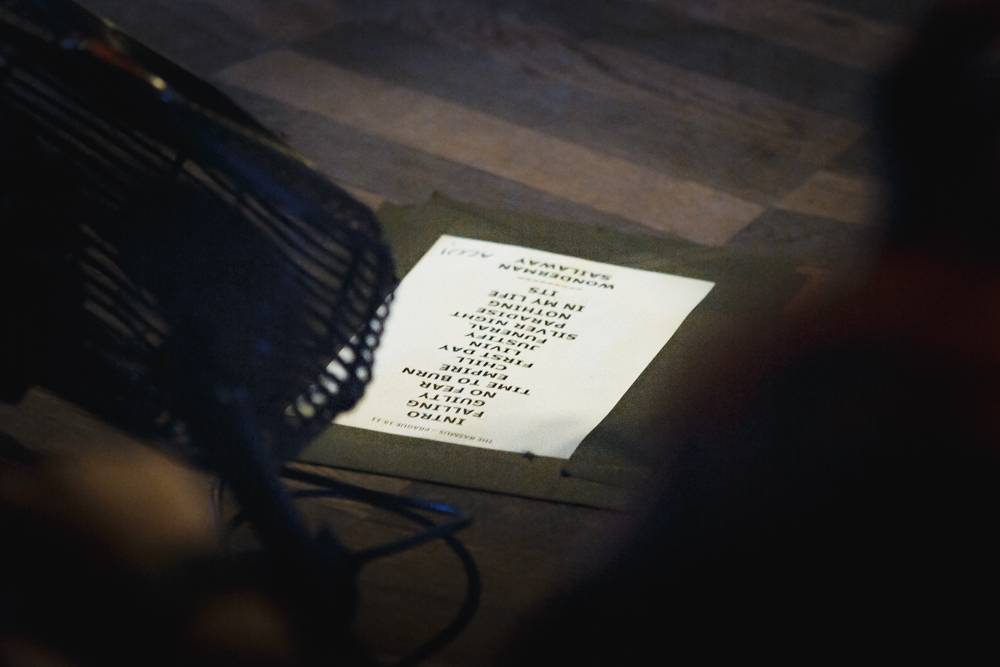 THE RASMUS - PRAGUE 10.11
INTRO
FALLING
GUILTY
NO FEAR
TIME TO BURN
EMPIRE
CHILL
FIRST DAY
LIVIN
JUSTIFY
FUNERAL
SILVER NIGHT
PARADISE
NOTHING
IN MY LIFE
ITS
WONDERMAN
SAILAWAY